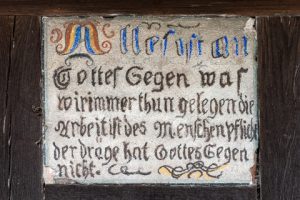 Alles ist an
Gottes Segen was
wir immer thun gelegen die
Arbeit ist des Menschen pflicht
der träge hat Gottes Segen
nicht.